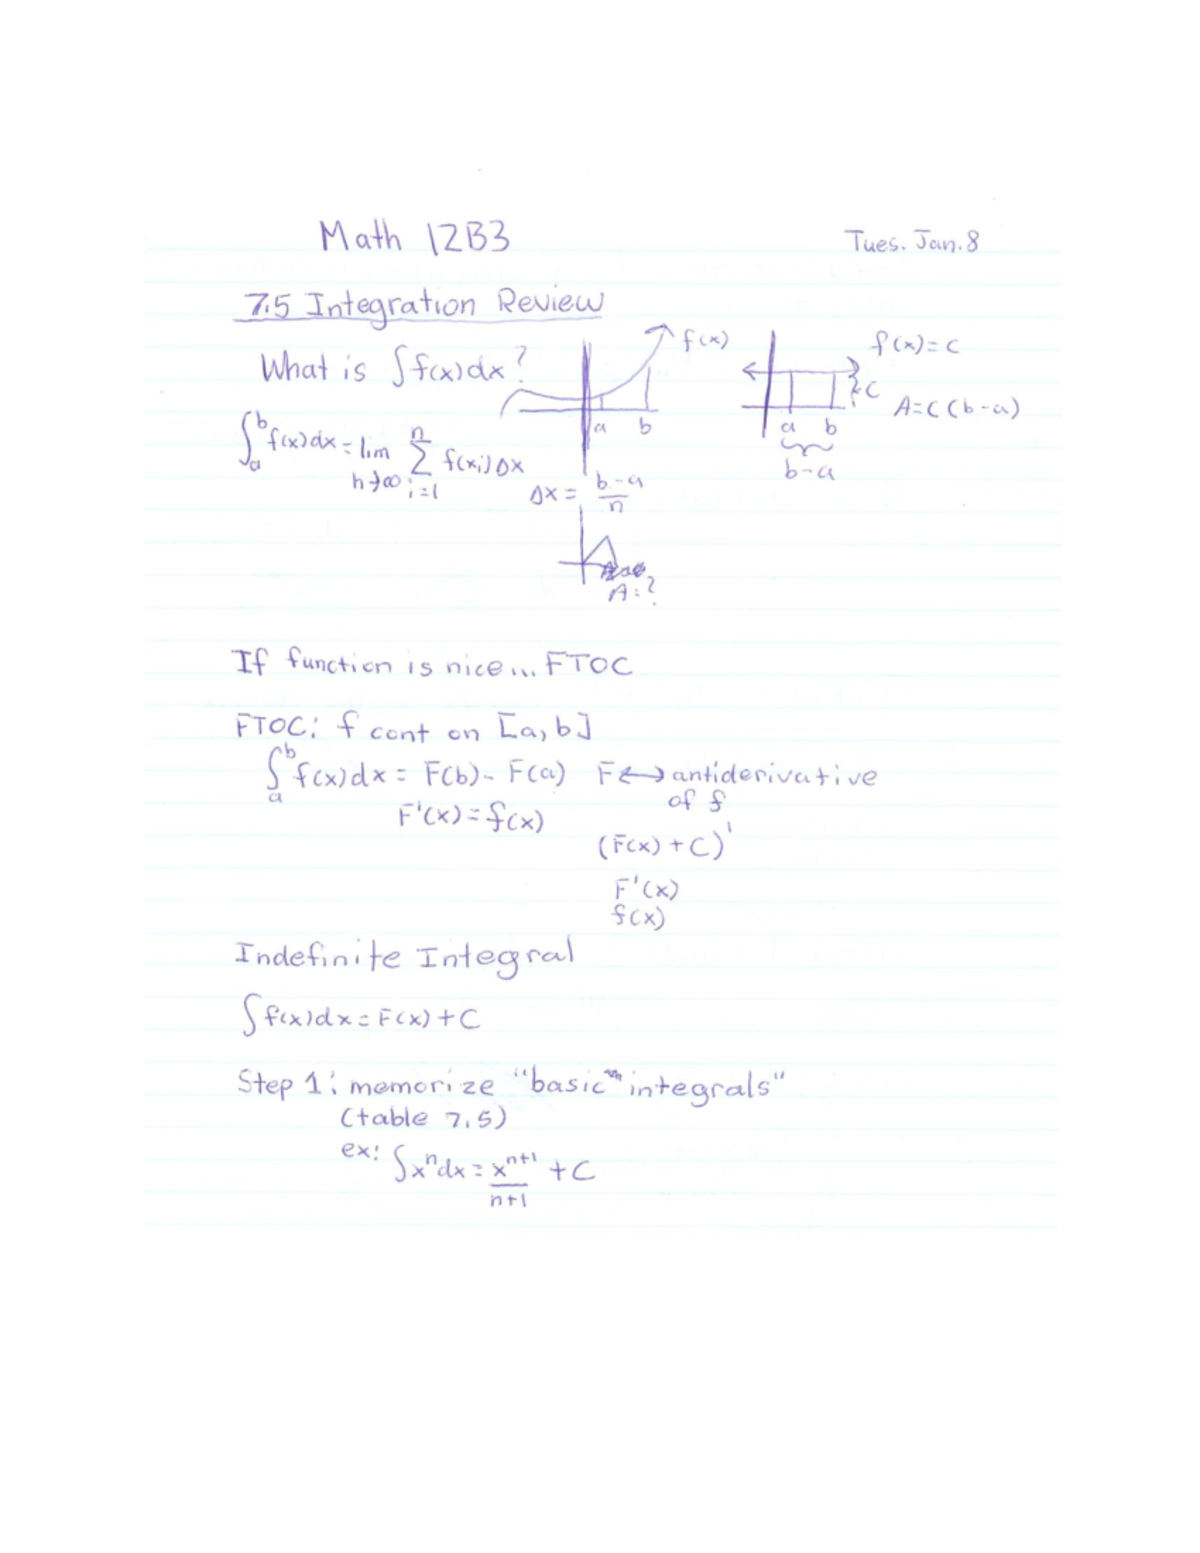 Math 1ZB3
Tues. Jan. 8
7.5 Integration Review
What is ∫f(x)dx?
f(x)
a b
f(x)=c
c
A=c(b-a)
a b
b-a
∫_a^b f(x)dx = lim_{n→∞} Σ_{i=1}^n f(xi)Δx
Δx = (b-a)/n
A=?
If function is nice... FTOC
FTOC: f cont on [a,b]
∫_a^b f(x)dx = F(b)-F(a) F↔antiderivative
of f
F'(x)=f(x)
(F(x)+C)'
F'(x)
f(x)
Indefinite Integral
∫f(x)dx=F(x)+C
Step 1: memorize "basic integrals"
(table 7.5)
ex: ∫x^n dx = x^{n+1}/(n+1) + C